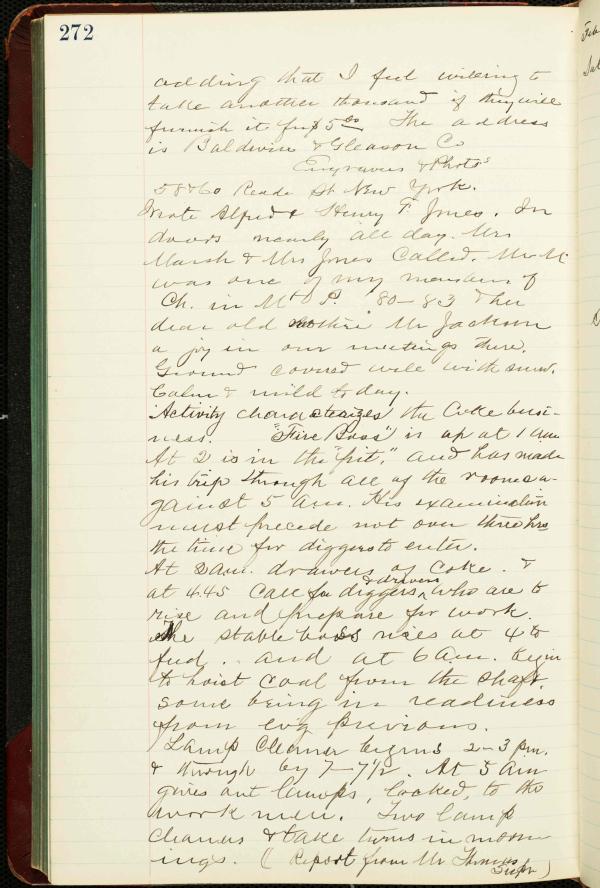 272
adding that I feel willing to
take another thousand if they will
furnish it for $5.00 The address
is Baldwin & Gleason Co
Engravers & Photos
58 & 60 Reade St New York.
Wrote Alfred & Henry F. Jones. In
doors nearly all day. Mrs
Marsh & Mrs Jones called. Mr M
was one of my members of
Ch. in Mt P. 80-83 & her
dear old Mr Jackson
a joy in our meetings there.
Ground covered well with snow.
Calm & mild today.
Activity characterizes the Coke busi-
ness. "Fire Boss" is up at 1 am
At 2 is in the "pit," and has made
his trip through all of the rooms a-
gainst 5 am. His examination
must precede not over three hrs
the time for diggers to enter.
At 2 am. drawers of coke. &
at 4.45 call for diggers & drivers who are to
rise and prepare for work.
The stable boss rises at 4 to
feed. and at 6 am. begin
to hoist coal from the shaft,
some being in readiness
from evg previous.
Lamp Cleaner begins 2-3 pm.
& through by 7-7½. At 5 am
gives out lamps, locked, to the
work men. Two lamp
cleaners & take turns in morn
ings. (Report from Mr Thomas
Supr)